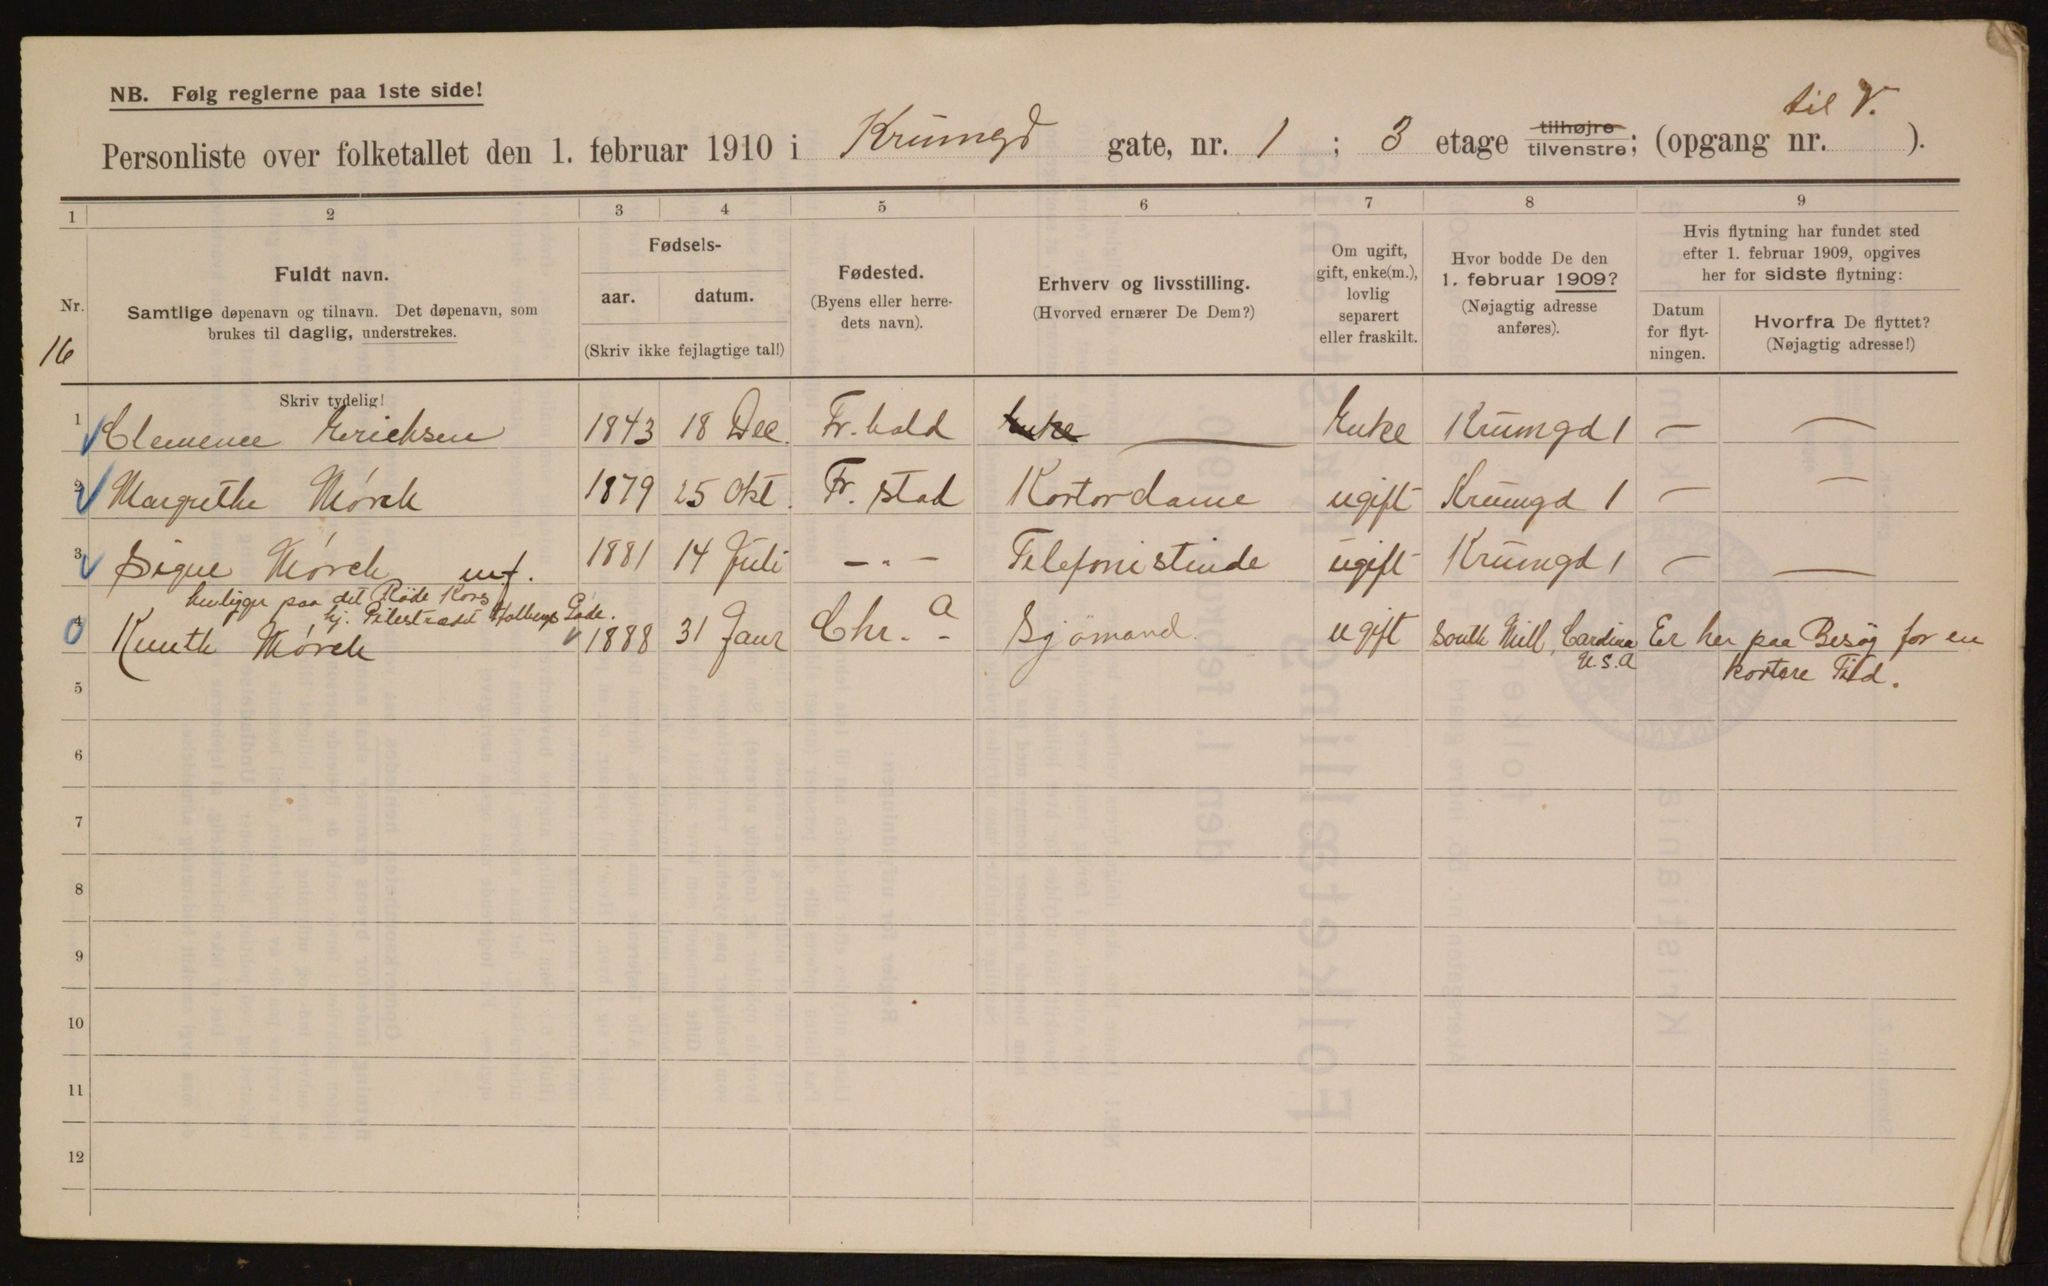 NB. Følg reglerne paa 1ste side!
til V.
Personliste over folketallet den 1. februar 1910 i Krumgd gate, nr. 1 ; 3 etage tilhøjre tilvenstre; (opgang nr. ).
1 2 3 4 5 6 7 8 9
Nr.
16
Fuldt navn.
Samtlige døpenavn og tilnavn. Det døpenavn, som
brukes til daglig, understrekes.
Fødsels-
aar. datum.
(Skriv ikke fejlagtige tal!)
Fødested.
(Byens eller herre-
dets navn).
Erhverv og livsstilling.
(Hvorved ernærer De Dem?)
Om ugift,
gift, enke(m.),
lovlig
separert
eller fraskilt.
Hvor bodde De den
1. februar 1909?
(Nøjagtig adresse
anføres).
Hvis flytning har fundet sted
efter 1. februar 1909, opgives
her for sidste flytning:
Datum
for flyt-
ningen.
Hvorfra De flyttet?
(Nøjagtig adresse!)
Skriv tydelig!
1 Clemence Erichsen 1843 18 Dec. Fr. hald Enke — Enke Krumgd 1 — —
2 Margrethe Mørch 1879 25 Okt. Fr. stad Kontordame ugift Krumgd 1 — —
3 Signe Mørch mf. 1881 14 Juli — " — Telefonistinde ugift Krumgd 1 — —
henligger paa det Røde Kors
hj. Pilestrædet Holbergs Gade.
4 Knuth Mørch 1888 31 Janr Chr. a Sjömand. ugift South Mill, Carolina Er her paa Besøg for en
U.S.A kortere Tid.
5
6
7
8
9
10
11
12